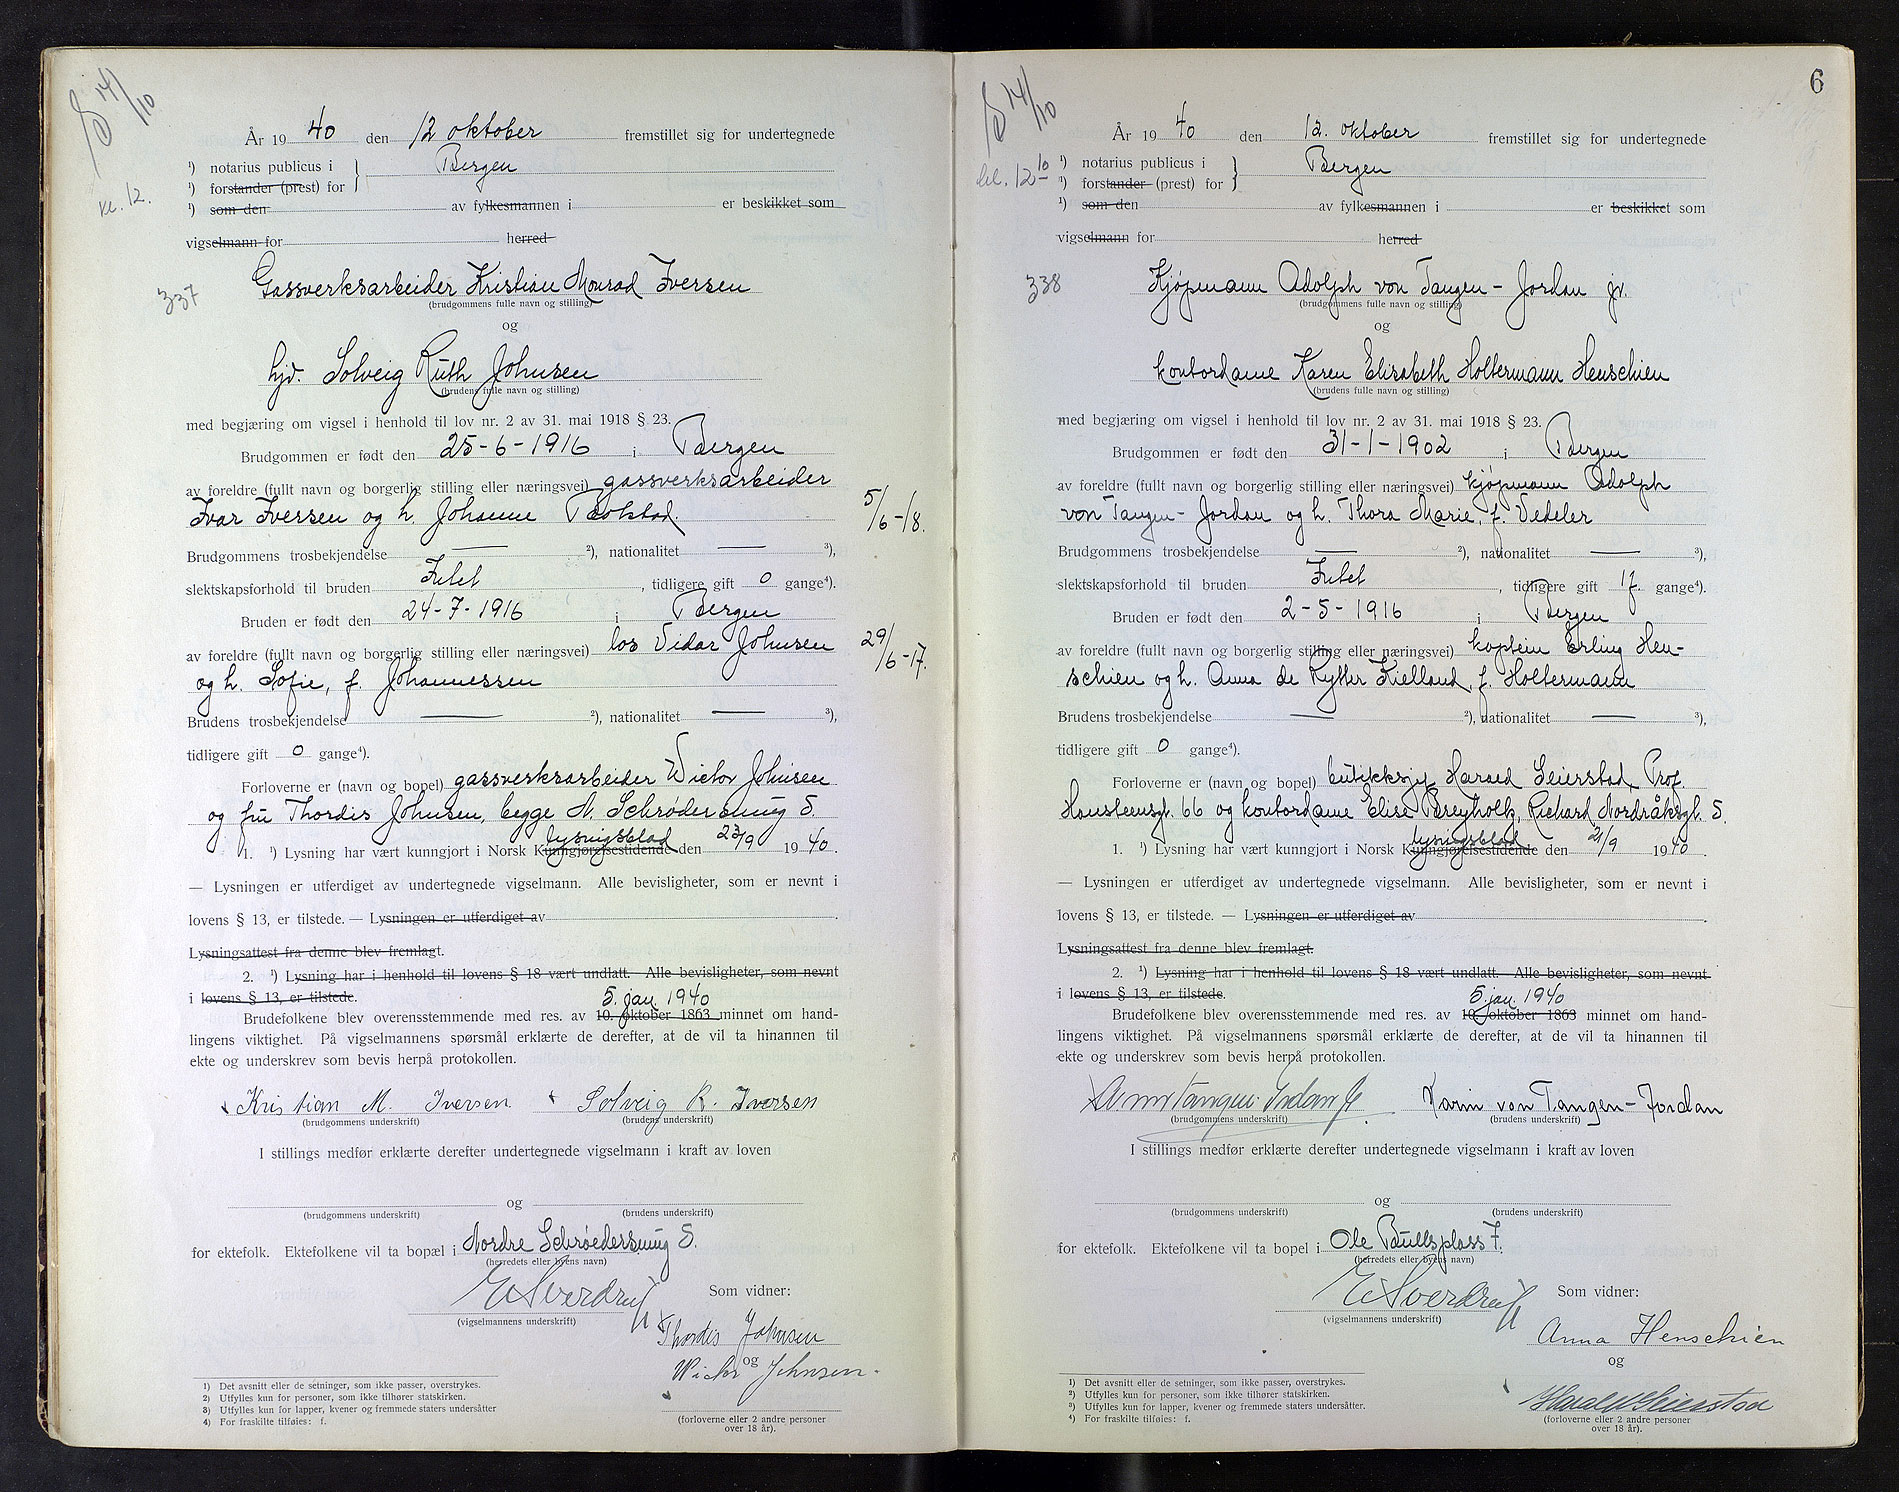 S 14/10
År 1940 den 12 oktober fremstillet sig for undertegnede
¹) notarius publicus i } Bergen
¹) forstander (prest) for
¹) som den av fylkesmannen i er beskikket som
kl. 12.
vigselmann for herred
337
Gassverksarbeider Kristian Monrad Iversen
(brudgommens fulle navn og stilling)
og
hjd. Solveig Ruth Johnsen
(brudens fulle navn og stilling)
med begjæring om vigsel i henhold til lov nr. 2 av 31. mai 1918 § 23.
Brudgommen er født den 25-6-1916 i Bergen
av foreldre (fullt navn og borgerlig stilling eller næringsvei) gassverksarbeider
Ivar Iversen og h. Johanne 5/6-18.
Brudgommens trosbekjendelse — ²), nationalitet — ³),
slektskapsforhold til bruden Intet, tidligere gift 0 gange⁴).
Bruden er født den 24-7-1916 i Bergen
av foreldre (fullt navn og borgerlig stilling eller næringsvei) los Vidar Johnsen 29/6-17.
og h. Sofie, f. Johannessen
Brudens trosbekjendelse — ²), nationalitet — ³),
tidligere gift 0 gange⁴).
Forloverne er (navn og bopel) gassverksarbeider Wictor Johnsen
og fru Thordis Johnsen, begge N. Schrødersmug 5.
lysningsblad
1. ¹) Lysning har vært kunngjort i Norsk Kunngjørelsestidende den 23/9 1940.
— Lysningen er utferdiget av undertegnede vigselmann. Alle bevisligheter, som er nevnt i
lovens § 13, er tilstede. — Lysningen er utferdiget av .
Lysningsattest fra denne blev fremlagt.
2. ¹) Lysning har i henhold til lovens § 18 vært undlatt. Alle bevisligheter, som nevnt
i lovens § 13, er tilstede.
5. jan. 1940
Brudefolkene blev overensstemmende med res. av 10. oktober 1863 minnet om hand-
lingens viktighet. På vigselmannens spørsmål erklærte de derefter, at de vil ta hinannen til
ekte og underskrev som bevis herpå protokollen.
Kristian M. Iversen Solveig R. Iversen
(brudgommens underskrift) (brudens underskrift)
I stillings medfør erklærte derefter undertegnede vigselmann i kraft av loven
og
(brudgommens underskrift) (brudens underskrift)
for ektefolk. Ektefolkene vil ta bopæl i Nordre Schrøedersmug 5.
(herredets eller byens navn)
E Sverdrup
(vigselmannens underskrift)
Som vidner:
Thordis Johnsen
og
Wictor Johnsen
(forloverne eller 2 andre personer
over 18 år).
1) Det avsnitt eller de setninger, som ikke passer, overstrykes.
2) Utfylles kun for personer, som ikke tilhører statskirken.
3) Utfylles kun for lapper, kvener og fremmede staters undersåtter
4) For fraskilte tilføies: f.
6
S 14/10
År 1940 den 12. oktober fremstillet sig for undertegnede
kl. 12 10
¹) notarius publicus i } Bergen
¹) forstander (prest) for
¹) som den av fylkesmannen i er beskikket som
vigselmann for herred
338
Kjøpmann Adolph von Tangen-Jordan jr.
(brudgommens fulle navn og stilling)
og
kontordame Karen Elisabeth Holtermann Henschien
(brudens fulle navn og stilling)
med begjæring om vigsel i henhold til lov nr. 2 av 31. mai 1918 § 23.
Brudgommen er født den 31-1-1902 i Bergen
av foreldre (fullt navn og borgerlig stilling eller næringsvei) kjøpmann Adolph
von Tangen-Jordan og h. Thora Marie, f. Vedeler
Brudgommens trosbekjendelse — ²), nationalitet — ³),
slektskapsforhold til bruden Intet, tidligere gift 1 f. gange⁴).
Bruden er født den 2-5-1916 i Bergen
av foreldre (fullt navn og borgerlig stilling eller næringsvei) kaptein Erling Hen-
schien og h. Anna de Rytter Kielland, f. Holtermann
Brudens trosbekjendelse — ²), nationalitet — ³),
tidligere gift 0 gange⁴).
Forloverne er (navn og bopel) butikksj. Harald Seierstad Prof.
Hansteensgt. 66 og kontordame Elise Breyholtz, Richard Nordråksgt. 5.
lysningsblad
1. ¹) Lysning har vært kunngjort i Norsk Kunngjørelsestidende den 21/9 1940.
— Lysningen er utferdiget av undertegnede vigselmann. Alle bevisligheter, som er nevnt i
lovens § 13, er tilstede. — Lysningen er utferdiget av .
Lysningsattest fra denne blev fremlagt.
2. ¹) Lysning har i henhold til lovens § 18 vært undlatt. Alle bevisligheter, som nevnt
i lovens § 13, er tilstede.
5. jan. 1940
Brudefolkene blev overensstemmende med res. av 10. oktober 1863 minnet om hand-
lingens viktighet. På vigselmannens spørsmål erklærte de derefter, at de vil ta hinannen til
ekte og underskrev som bevis herpå protokollen.
A von Tangen-Jordan jr. Karin von Tangen-Jordan
(brudgommens underskrift) (brudens underskrift)
I stillings medfør erklærte derefter undertegnede vigselmann i kraft av loven
og
(brudgommens underskrift) (brudens underskrift)
for ektefolk. Ektefolkene vil ta bopel i Ole Bullsplass 7.
(herredets eller byens navn)
E Sverdrup
(vigselmannens underskrift)
Som vidner:
Anna Henschien
og
Harald Seierstad
(forloverne eller 2 andre personer
over 18 år).
¹) Det avsnitt eller de setninger, som ikke passer, overstrykes.
²) Utfylles kun for personer, som ikke tilhører statskirken.
³) Utfylles kun for lapper, kvener og fremmede staters undersåtter.
⁴) For fraskilte tilføies: f.